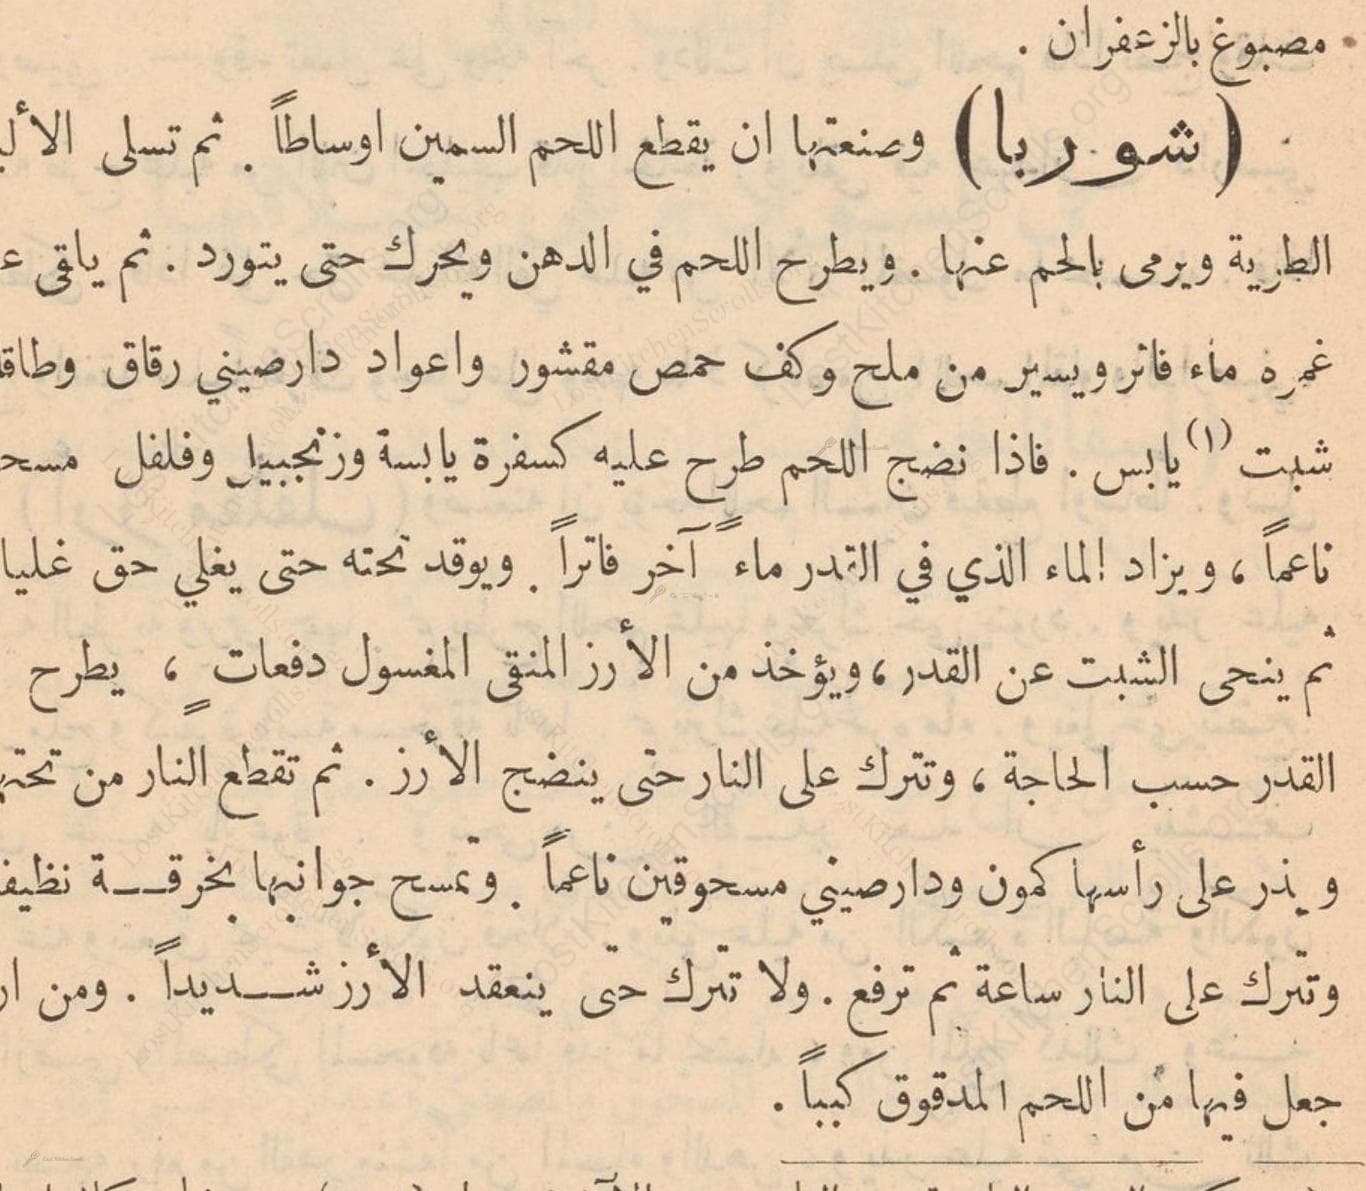 مصبوغ بالزعفران .
(شوربا) وصنعتها ان يقطع اللحم السمين اوساطاً . ثم تسلى
الطرية ويرمى بالحم عنها . ويطرح اللحم في الدهن ويحرك حتى يتورد . ثم ياقى
غمره ماء فاتر ويسير من ملح وكف حمص مقشور واعواد دارصيني رقاق
شبت (١) يابس . فاذا نضج اللحم طرح عليه كسفرة يابسة وزنجبيل وفلفل
ناعماً ، ويزاد الماء الذي في القدر ماءً آخر فاتراً . ويوقد تحته حتى يغلي حق غليا
ثم ينحى الشبت عن القدر ، ويؤخذ من الأرز المنقى المغسول دفعاتٍ ، يطرح
القدر حسب الحاجة ، وتترك على النار حتى ينضج الأرز . ثم تقطع النار من
ويذر على رأسها كمون ودارصيني مسحوقين ناعماً . وتمسح جوانبها بخرقـــة
وتترك على النار ساعة ثم ترفع . ولا تترك حتى ينعقد الأرز شـــديداً . ومن
جعل فيها من اللحم المدقوق كبباً .